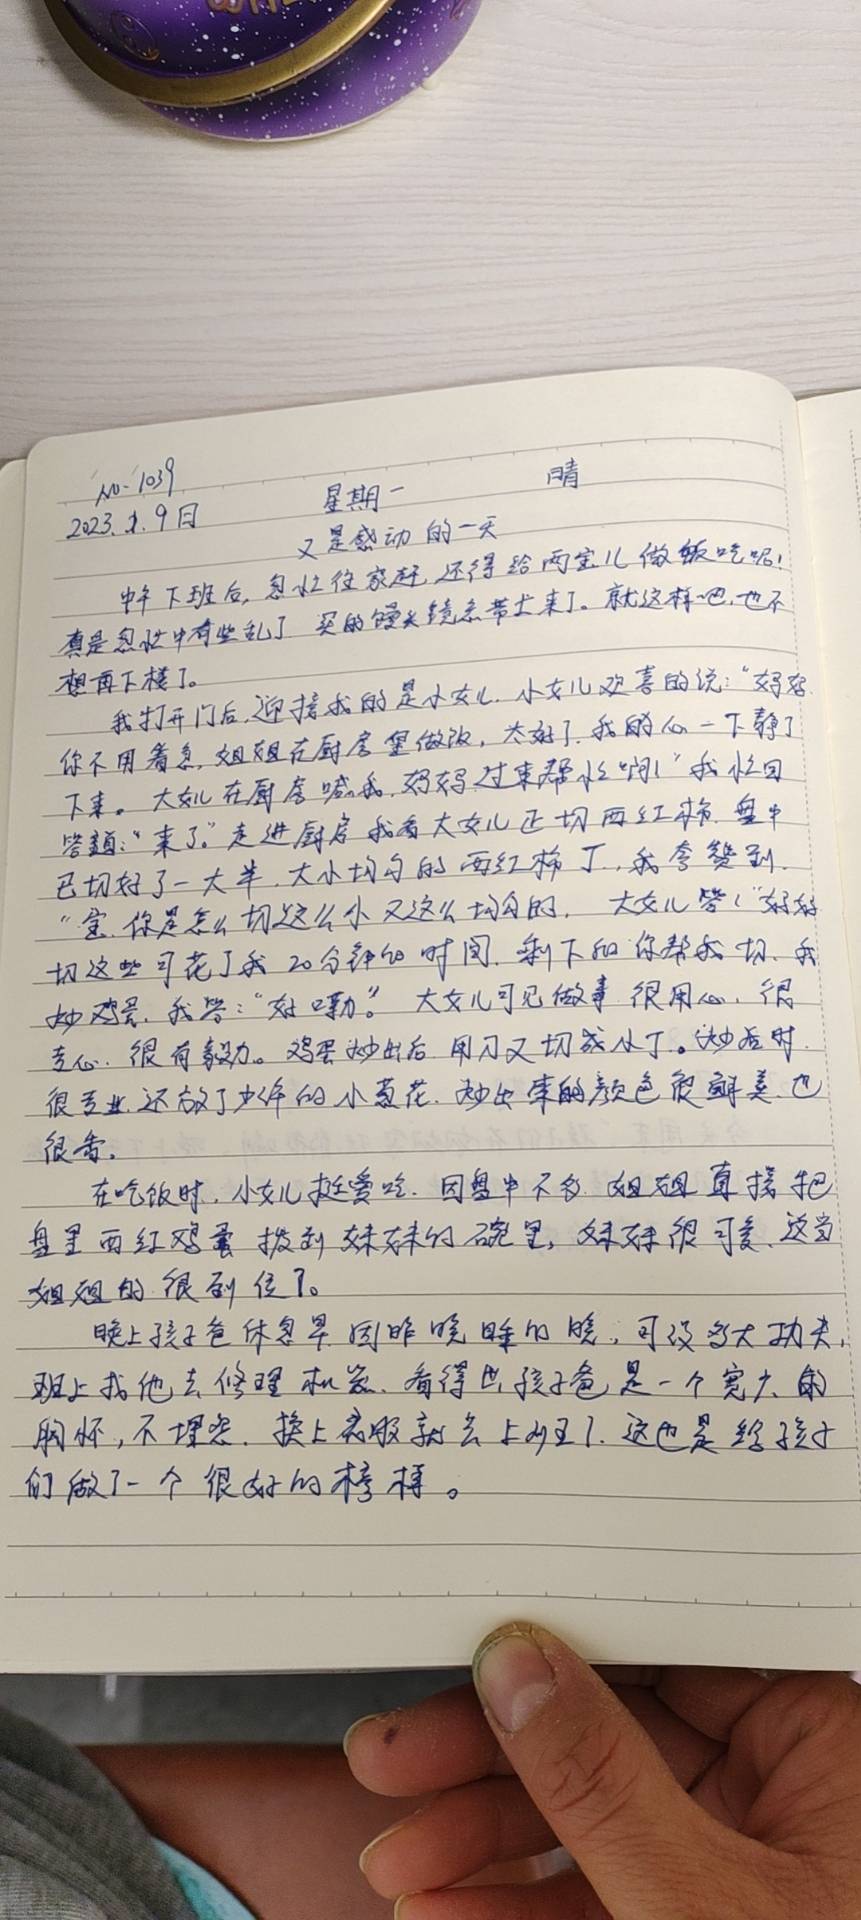 NO-1039
2023.1.9日 星期一 晴
又是感动的一天
中午下班后,急忙往家赶,还得给两宝儿做饭吃呢!
真是急忙中有些乱了 买的馒头 带上来了。就这样吧,也不
想再下楼了。
我打开门后,迎接我的是小女儿.小女儿欢喜的说:“妈妈
你不用着急,姐姐在厨房里做饭,太好了.我的心一下静了
下来。大女儿在厨房喊我,妈妈过来帮忙啊!”我忙回
答道:“来了。”走进厨房我看大女儿正切西红柿.盘中
已切好了一大半.大小均匀的西红柿丁,我夸赞到.
“宝.你是怎么切这么小又这么均匀的. 大女儿答:“妈妈
切这些可花了我20分钟的时间.剩下的你帮我切.我
炒鸡蛋.我答:“好嘞。”大女儿可见做事很用心.很
专心.很有毅力。鸡蛋炒出后用刀又切成小丁。炒者时.
很专业.还放了少许的小葱花.炒出来的颜色很鲜美.也
很香。
在吃饭时.小女儿挺爱吃.因盘中不多.姐姐直接把
盘里西红鸡蛋拨到妹妹的碗里,妹妹很可爱.这当
姐姐的很到位了。
晚上孩子爸休息早.因昨晚睡的晚,可没多大功夫,
班上找他去修理机器.看得出,孩子爸是一个宽大的
胸怀,不埋怨.换上衣服就去上班了.这也是给孩子
们做了一个很好的榜样。